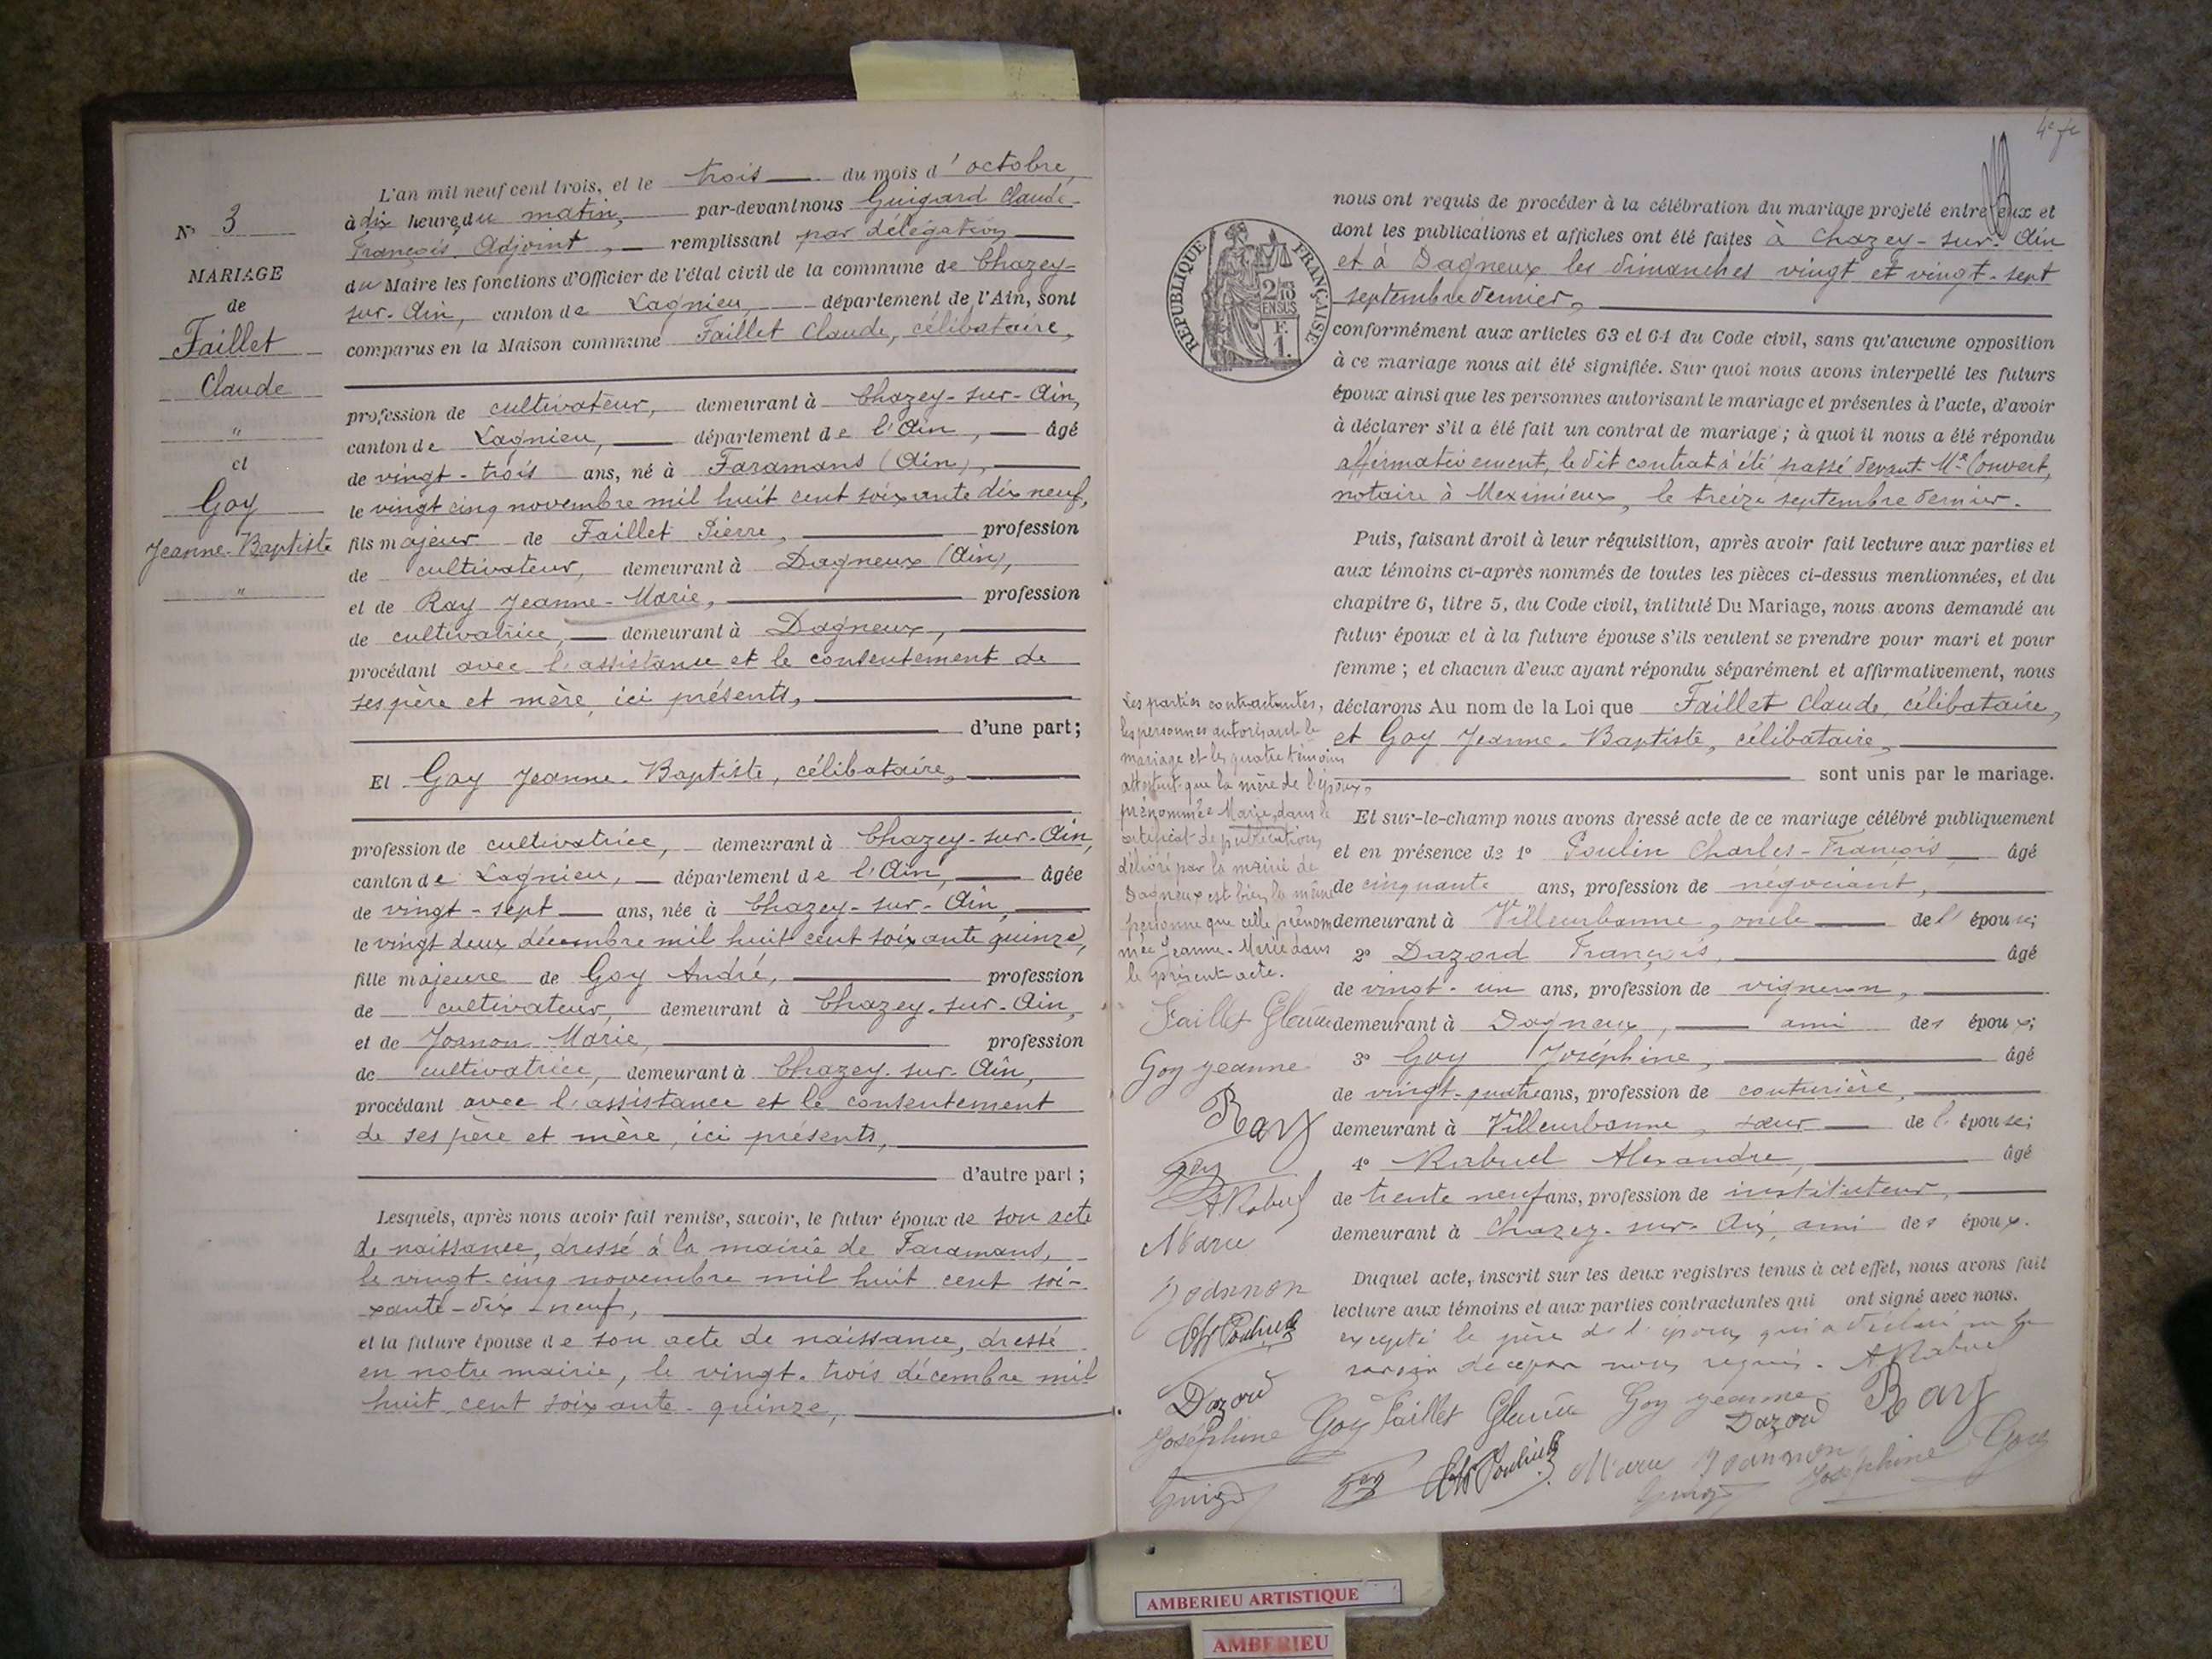 N° 3
MARIAGE
de
Faillet
Claude
"
et
Goy
Jeanne-Baptiste
"
L'an mil neuf cent trois, et le trois du mois d'octobre,
à dix heures du matin, par-devant nous Guigard Claude-
François, Adjoint, remplissant par délégation
du Maire les fonctions d'Officier de l'état civil de la commune de Chazey-
sur-Ain, canton de Lagnieu, département de l'Ain, sont
comparus en la Maison commune Faillet Claude, célibataire,
profession de cultivateur, demeurant à Chazey-sur-Ain,
canton de Lagnieu, département de l'Ain, âgé
de vingt-trois ans, né à Faramans (Ain),
le vingt cinq novembre mil huit cent soixante dix neuf,
fils majeur de Faillet Pierre, profession
de cultivateur, demeurant à Dagneux (Ain),
et de Ray Jeanne-Marie, profession
de cultivatrice, demeurant à Dagneux,
procédant avec l'assistance et le consentement de
ses père et mère, ici présents,
d'une part;
Et Goy Jeanne-Baptiste, célibataire,
profession de cultivatrice, demeurant à Chazey-sur-Ain,
canton de Lagnieu, département de l'Ain, âgée
de vingt-sept ans, née à Chazey-sur-Ain,
le vingt deux décembre mil huit cent soixante quinze,
fille majeure de Goy André, profession
de cultivateur, demeurant à Chazey-sur-Ain,
et de Joanon Marie, profession
de cultivatrice, demeurant à Chazey-sur-Ain,
procédant avec l'assistance et le consentement
de ses père et mère, ici présents,
d'autre part;
Lesquels, après nous avoir fait remise, savoir, le futur époux de son acte
de naissance, dressé à la mairie de Faramans,
le vingt-cinq novembre mil huit cent soi-
xante-dix-neuf,
et la future épouse de son acte de naissance, dressé
en notre mairie, le vingt-trois décembre mil
huit cent soixante-quinze,
RÉPUBLIQUE FRANÇAISE
2/10
EN SUS
F.
1.
nous ont requis de procéder à la célébration du mariage projeté entre eux et
dont les publications et affiches ont été faites à Chazey-sur-Ain
et à Dagneux les dimanches vingt et vingt-sept
septembre dernier,
conformément aux articles 63 et 64 du Code civil, sans qu'aucune opposition
à ce mariage nous ait été signifiée. Sur quoi nous avons interpellé les futurs
époux ainsi que les personnes autorisant le mariage et présentes à l'acte, d'avoir
à déclarer s'il a été fait un contrat de mariage; à quoi il nous a été répondu
affirmativement, le dit contrat a été passé devant Me Convert,
notaire à Meximieux, le treize septembre dernier.
Puis, faisant droit à leur réquisition, après avoir fait lecture aux parties et
aux témoins ci-après nommés de toutes les pièces ci-dessus mentionnées, et du
chapitre 6, titre 5, du Code civil, intitulé Du Mariage, nous avons demandé au
futur époux et à la future épouse s'ils veulent se prendre pour mari et pour
femme; et chacun d'eux ayant répondu séparément et affirmativement, nous
déclarons Au nom de la Loi que Faillet Claude, célibataire,
et Goy Jeanne-Baptiste, célibataire,
sont unis par le mariage.
Et sur-le-champ nous avons dressé acte de ce mariage célébré publiquement
et en présence de 1° Poulin Charles-François âgé
de cinquante ans, profession de négociant,
demeurant à Villeurbanne, oncle de l'épouse;
2° Dazord François, âgé
de vingt-un ans, profession de vigneron,
demeurant à Dagneux, ami des époux;
3° Goy Joséphine, âgé
de vingt-quatre ans, profession de couturière,
demeurant à Villeurbanne, sœur de l'épouse;
4° Rabuel Alexandre, âgé
de trente neuf ans, profession de instituteur,
demeurant à Chazey-sur-Ain, ami des époux.
Duquel acte, inscrit sur les deux registres tenus à cet effet, nous avons fait
lecture aux témoins et aux parties contractantes qui ont signé avec nous.
excepté le père de l'époux qui a déclaré ne
savoir de ce par nous requis. A. Rabuel
Les parties contractantes,
les personnes autorisant le
mariage et les quatre témoins
attestent que la mère de l'époux,
prénommée Marie, dans le
certificat de publication,
délivré par la mairie de
Dagneux est bien la même
personne que celle prénom
mée Jeanne-Marie dans
le présent acte.
Faillet Claude
Goy Jeanne
Ray
Goy
A Rabuel
Marie
Joannon
Ch Poulin
Dazord
Joséphine Goy Faillet Claude Goy Jeanne Dazord Ray
Ch Poulin Marie Joannon Joséphine Goy
AMBERIEU ARTISTIQUE
AMBERIEU